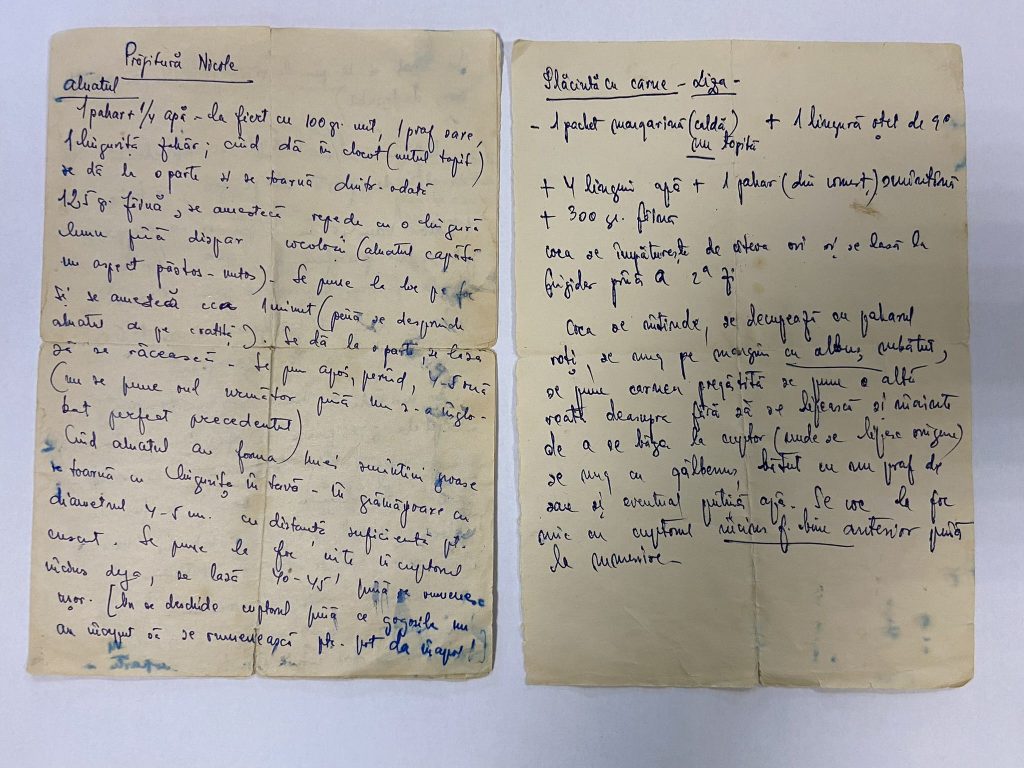 Prăjitură Nicole
aluatul
1 pahar + 1/4 apă - la fiert cu 100 gr. unt, 1 praf sare,
1 linguriță zahăr; cînd dă în clocot (untul topit)
se dă la o parte și se toarnă dintr-odată
125 gr. făină, se amestecă repede cu o lingură
lemn pînă dispar cocoloși (aluatul capătă
un aspect păstos-untos). Se pune la loc pe foc
și se amestecă cca 1 minut (pînă se desprinde
aluatul de pe cratiță). Se dă la o parte, se lasă
să se răcească - Se pun apoi, pe rînd, 4-5 ouă
(nu se pune oul următor pînă nu s-a înglo-
bat perfect precedentul)
Cînd aluatul are forma unei smîntîni groase
se toarnă cu lingurița în tavă - în grămăjoare cu
diametrul 4-5 cm. cu distanță suficientă pt.
crescut. Se pune la foc iute în cuptorul
încins deja, se lasă 40-45' pînă se rumenesc
ușor. [Nu se deschide cuptorul pînă ce gogoșile nu
au început să se rumenească ptr. pot da înapoi!]
Plăcintă cu carne - Liza -
- 1 pachet margarină (caldă) + 1 lingură oțet de 9°
nu topită
+ 4 linguri apă + 1 pahar (din comerț) smîntînă
+ 300 gr. făină
coca se împăturește de cîteva ori și se lasă la
frigider pînă a 2ª zi
Coca se întinde, se decupează cu paharul
roți, se ung pe margini cu albuș nebătut,
se pune carnea pregătită se pune o altă
roată deasupra fără să se lipească și înainte
de a se băga la cuptor (unde se lipesc singure)
se ung cu gălbenuș bătut cu un praf de
sare și eventual puțină apă. Se coc la foc
mic cu cuptorul încins f. bine anterior pînă
la rumenire -